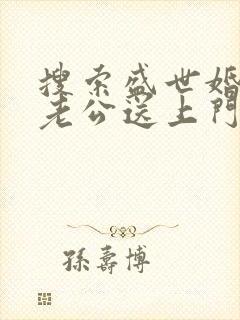 搜索盛世婚
老公送上门
孫壽博